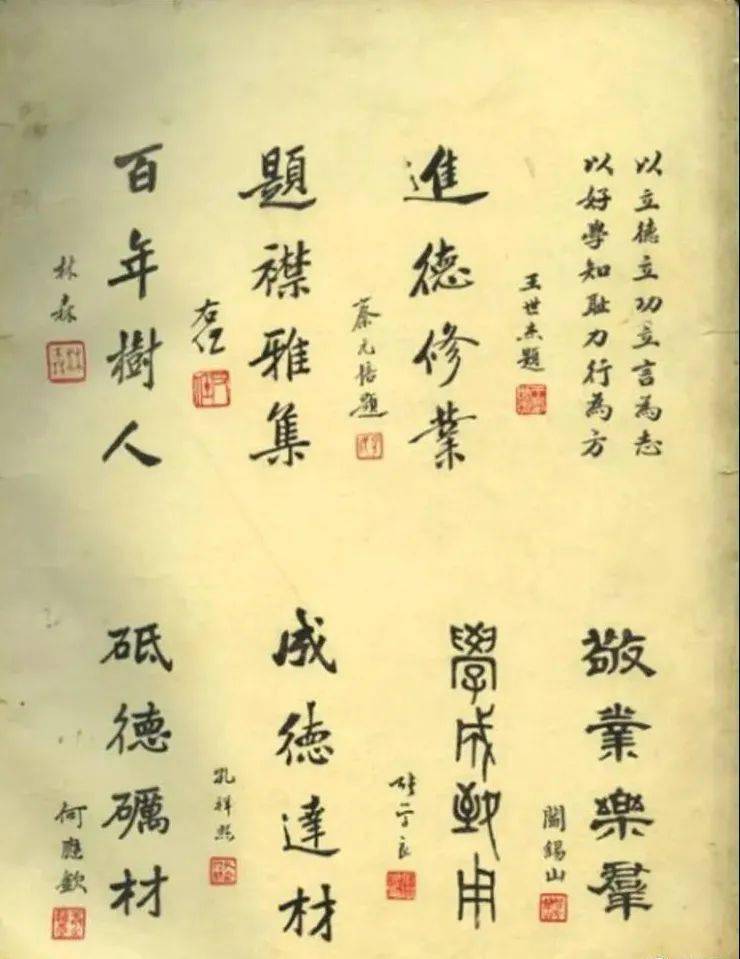 以立德立功立言為志
以好學知耻力行為方
王世杰題
進德修業
蔡元培題
題襟雅集
右任
百年樹人
林森
敬業樂羣
閻錫山
學成致用
張學良
成德達材
孔祥熙
砥德礪材
何應欽